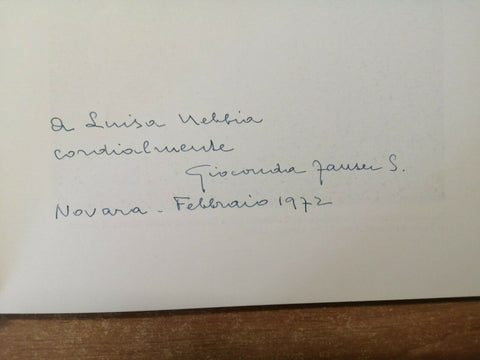 A Luisa Nebbia
cordialmente
Gioconda S.
Novara - Febbraio 1972